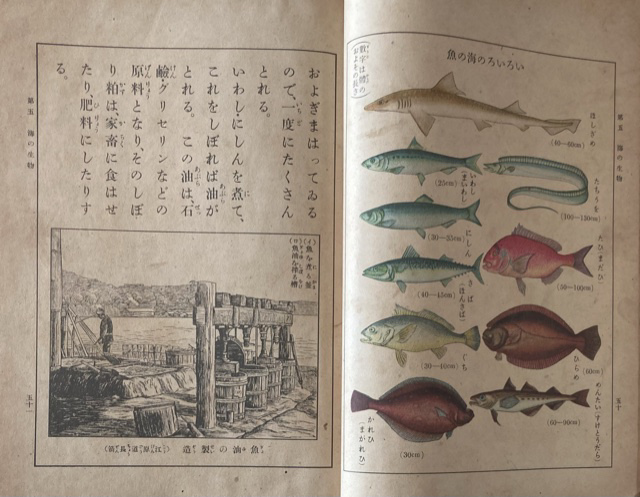 いろいろのの海の魚
(数字は體の
およその長さ)
ほしざめ
(40—80cm)
いわし
(まいわし)
(25cm)
たちうを
(100—130cm)
にしん
(30—35cm)
たひ(まだひ)
(50—100cm)
さば
(ほんさば)
(40—45cm)
ぐち
(30—40cm)
ひらめ
(60cm)
めんたい(すけとうだら)
(60—90cm)
かれひ
(まがれひ)
(30cm)
第五 海の生物
五十
およぎまはってゐる
ので、一度にたくさん
とれる。
いわしにしんを煮て、
これをしぼれば油が
とれる。この油は、石
鹼グリセリンなどの
原料となり、そのしぼ
り粕は、家畜に食はせ
たり、肥料にしたりす
る。
(イ)魚を煮る釜
(ロ)魚油を搾る槽
魚油の製造
(江原道長箭)
第五 海の生物
五十